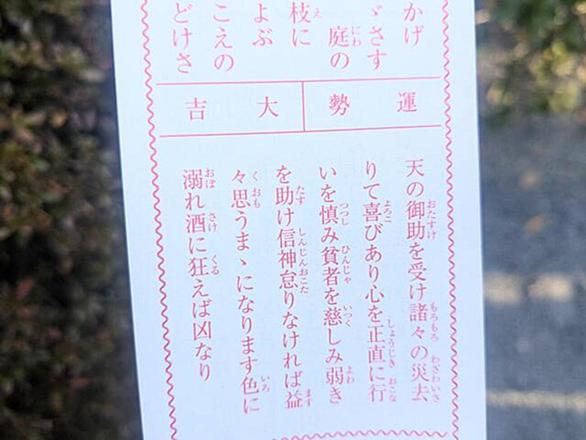 かげ
ゞさす
庭の
枝に
よぶ
こえの
どけさ
運勢
大吉
天の御助を受け諸々の災去
りて喜びあり心を正直に行
いを慎み貧者を慈しみ弱き
を助け信神怠りなければ益
々思うまゝになります色に
溺れ酒に狂えば凶なり